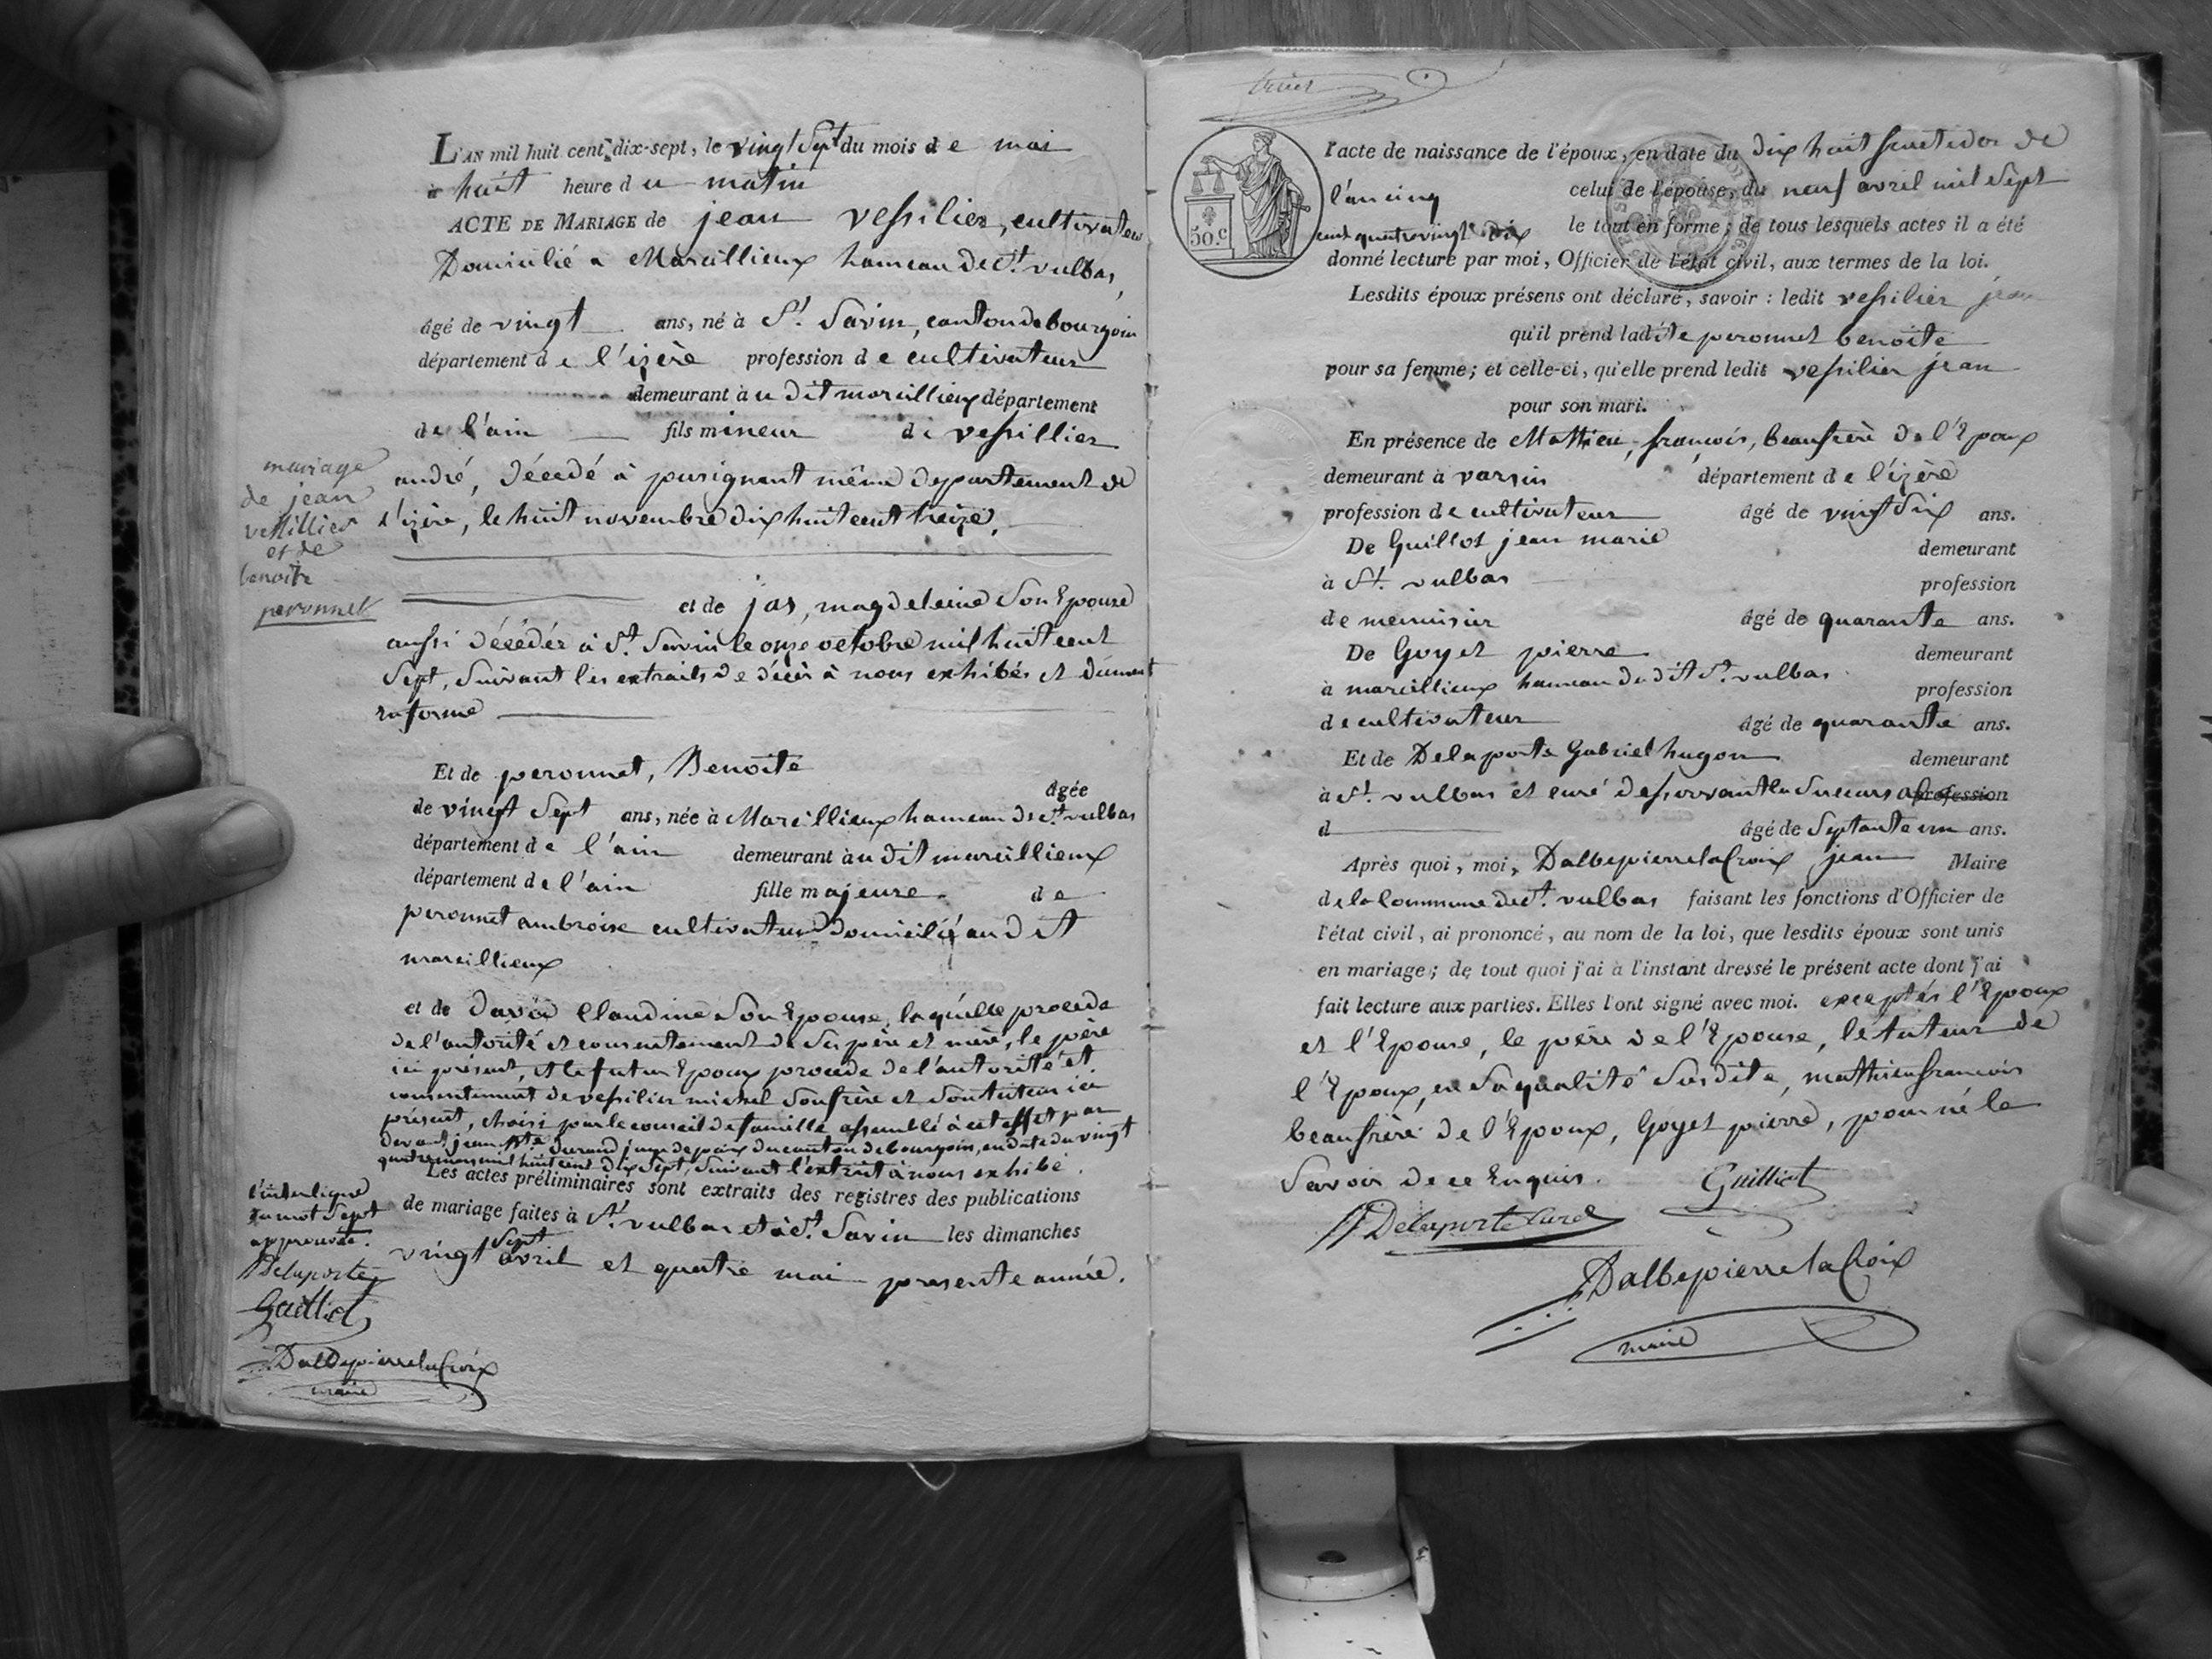 L'AN mil huit cent dix-sept, le vingt Sept du mois de mai
à huit heure du matin
ACTE DE MARIAGE de jean vessilier, cultivateur
Domicilié a Marcillieux hameau de St. vulbas,
âgé de vingt ans, né à St. Savin, canton de bourgoin
département de l'izère profession de cultivateur
demeurant à u dit marcillieux département
de l'ain fils mineur de vessillier
andré, décédé à pusignant même departement de
l'izère, le huit novembre dix huit cent treize,
mariage
de jean
vessillier
et de
benoite
peronnet
et de jas, magdeleine son Epouse
aussi décédée à St. Savin le onze octobre mil huit cent
Sept, Suivant les extraits de décès à nous exhibés et dument
en forme
Et de peronnet, Benoite
âgée
de vingt Sept ans, née à Marcillieux hameau de St. vulbas
département de l'ain demeurant au dit marcillieux
département de l'ain fille majeure de
peronnet ambroise cultivateur domicilié au dit
marcillieux
et de david Claudine Son Epouse, laquelle procede
de l'autorité et consentement de Ses père et mère, le père
ici présent, et le futur Epoux procede de l'autorité et
consentement de vessilier michel Son frère et Son tuteur ici
présent, choisi par le conseil de famille assemblé à cet effet par
devant jean Bte Durand juge de paix du canton de bourgoin, en date du vingt
quatre mars mil huit cent dix Sept, Suivant l'extrait à nous exhibé.
Les actes préliminaires sont extraits des registres des publications
de mariage faites à St. vulbas et à St. Savin les dimanches
Sept
vingt avril et quatre mai presente année.
l'interligne
du mot Sept
approuvée.
Delaporte
Guilliot
Dalbepierre la Croix
maire
l'acte de naissance de l'époux, en date du dix huit fructidor de
l'an cinq celui de l'épouse, du neuf avril mil Sept
cent quatrevingt dix le tout en forme; de tous lesquels actes il a été
50.c
donné lecture par moi, Officier de l'état civil, aux termes de la loi.
Lesdits époux présens ont déclaré, savoir : ledit vessilier jean
qu'il prend ladite peronnet benoite
pour sa femme; et celle-ci, qu'elle prend ledit vessilier jean
pour son mari.
En présence de Mathieu, françois, beaufrère de l'Epoux
demeurant à varsin département de l'izère
profession de cultivateur âgé de vingt Six ans.
De Guillot jean marie demeurant
à St. vulbas profession
de menuisier âgé de quarante ans.
De Goyet pierre demeurant
à marcillieux hameau du dit St. vulbas profession
de cultivateur âgé de quarante ans.
Et de Delaporte Gabriel hugon demeurant
à St. vulbas et curé desservant la Succursale profession
d âgé de Septante un ans.
Après quoi, moi, Dalbepierre la Croix jean Maire
de la Commune de St. vulbas faisant les fonctions d'Officier de
l'état civil, ai prononcé, au nom de la loi, que lesdits époux sont unis
en mariage; de tout quoi j'ai à l'instant dressé le présent acte dont j'ai
fait lecture aux parties. Elles l'ont signé avec moi. exceptés l'Epoux
et l'Epouse, le père de l'Epouse, le tuteur de
l'Epoux, en Sa qualité Susdite, mathieu francois
beaufrère de l'Epoux, Goyet pierre, pour ne le
Savoir de ce Enquis. Guilliot
Delaporte Curé
Dalbepierre la Croix
maire